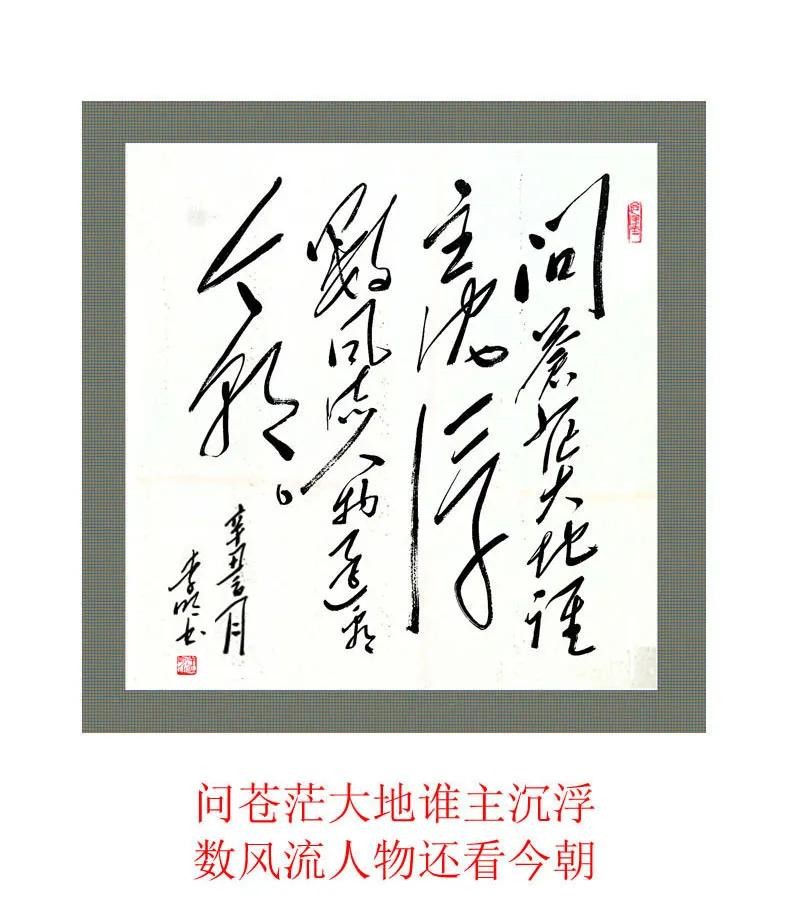 问苍茫大地谁
主沉浮
数风流人物还看
今朝。
辛丑三月
李明书
问苍茫大地谁主沉浮
数风流人物还看今朝